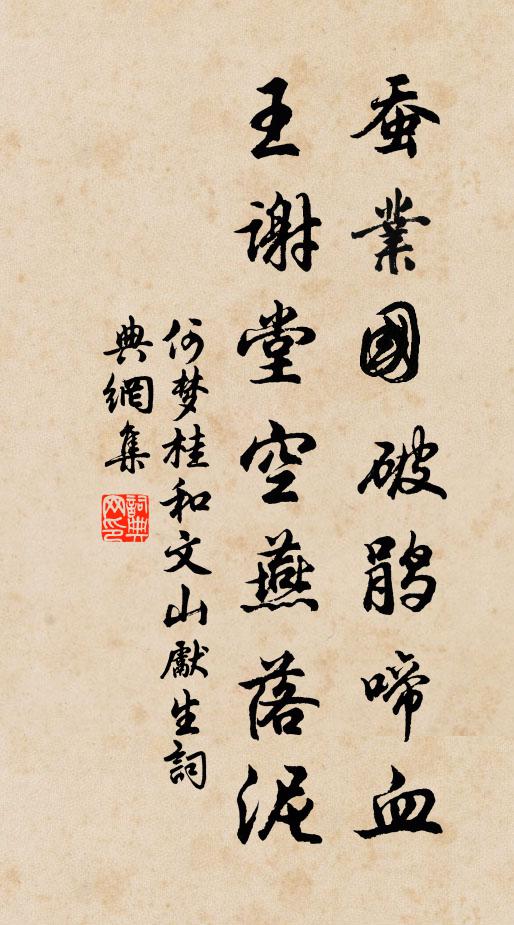 蚕業國破鵑啼血
王谢堂空燕落泥
何梦桂和文山獻生詞
典網集
詞典网印